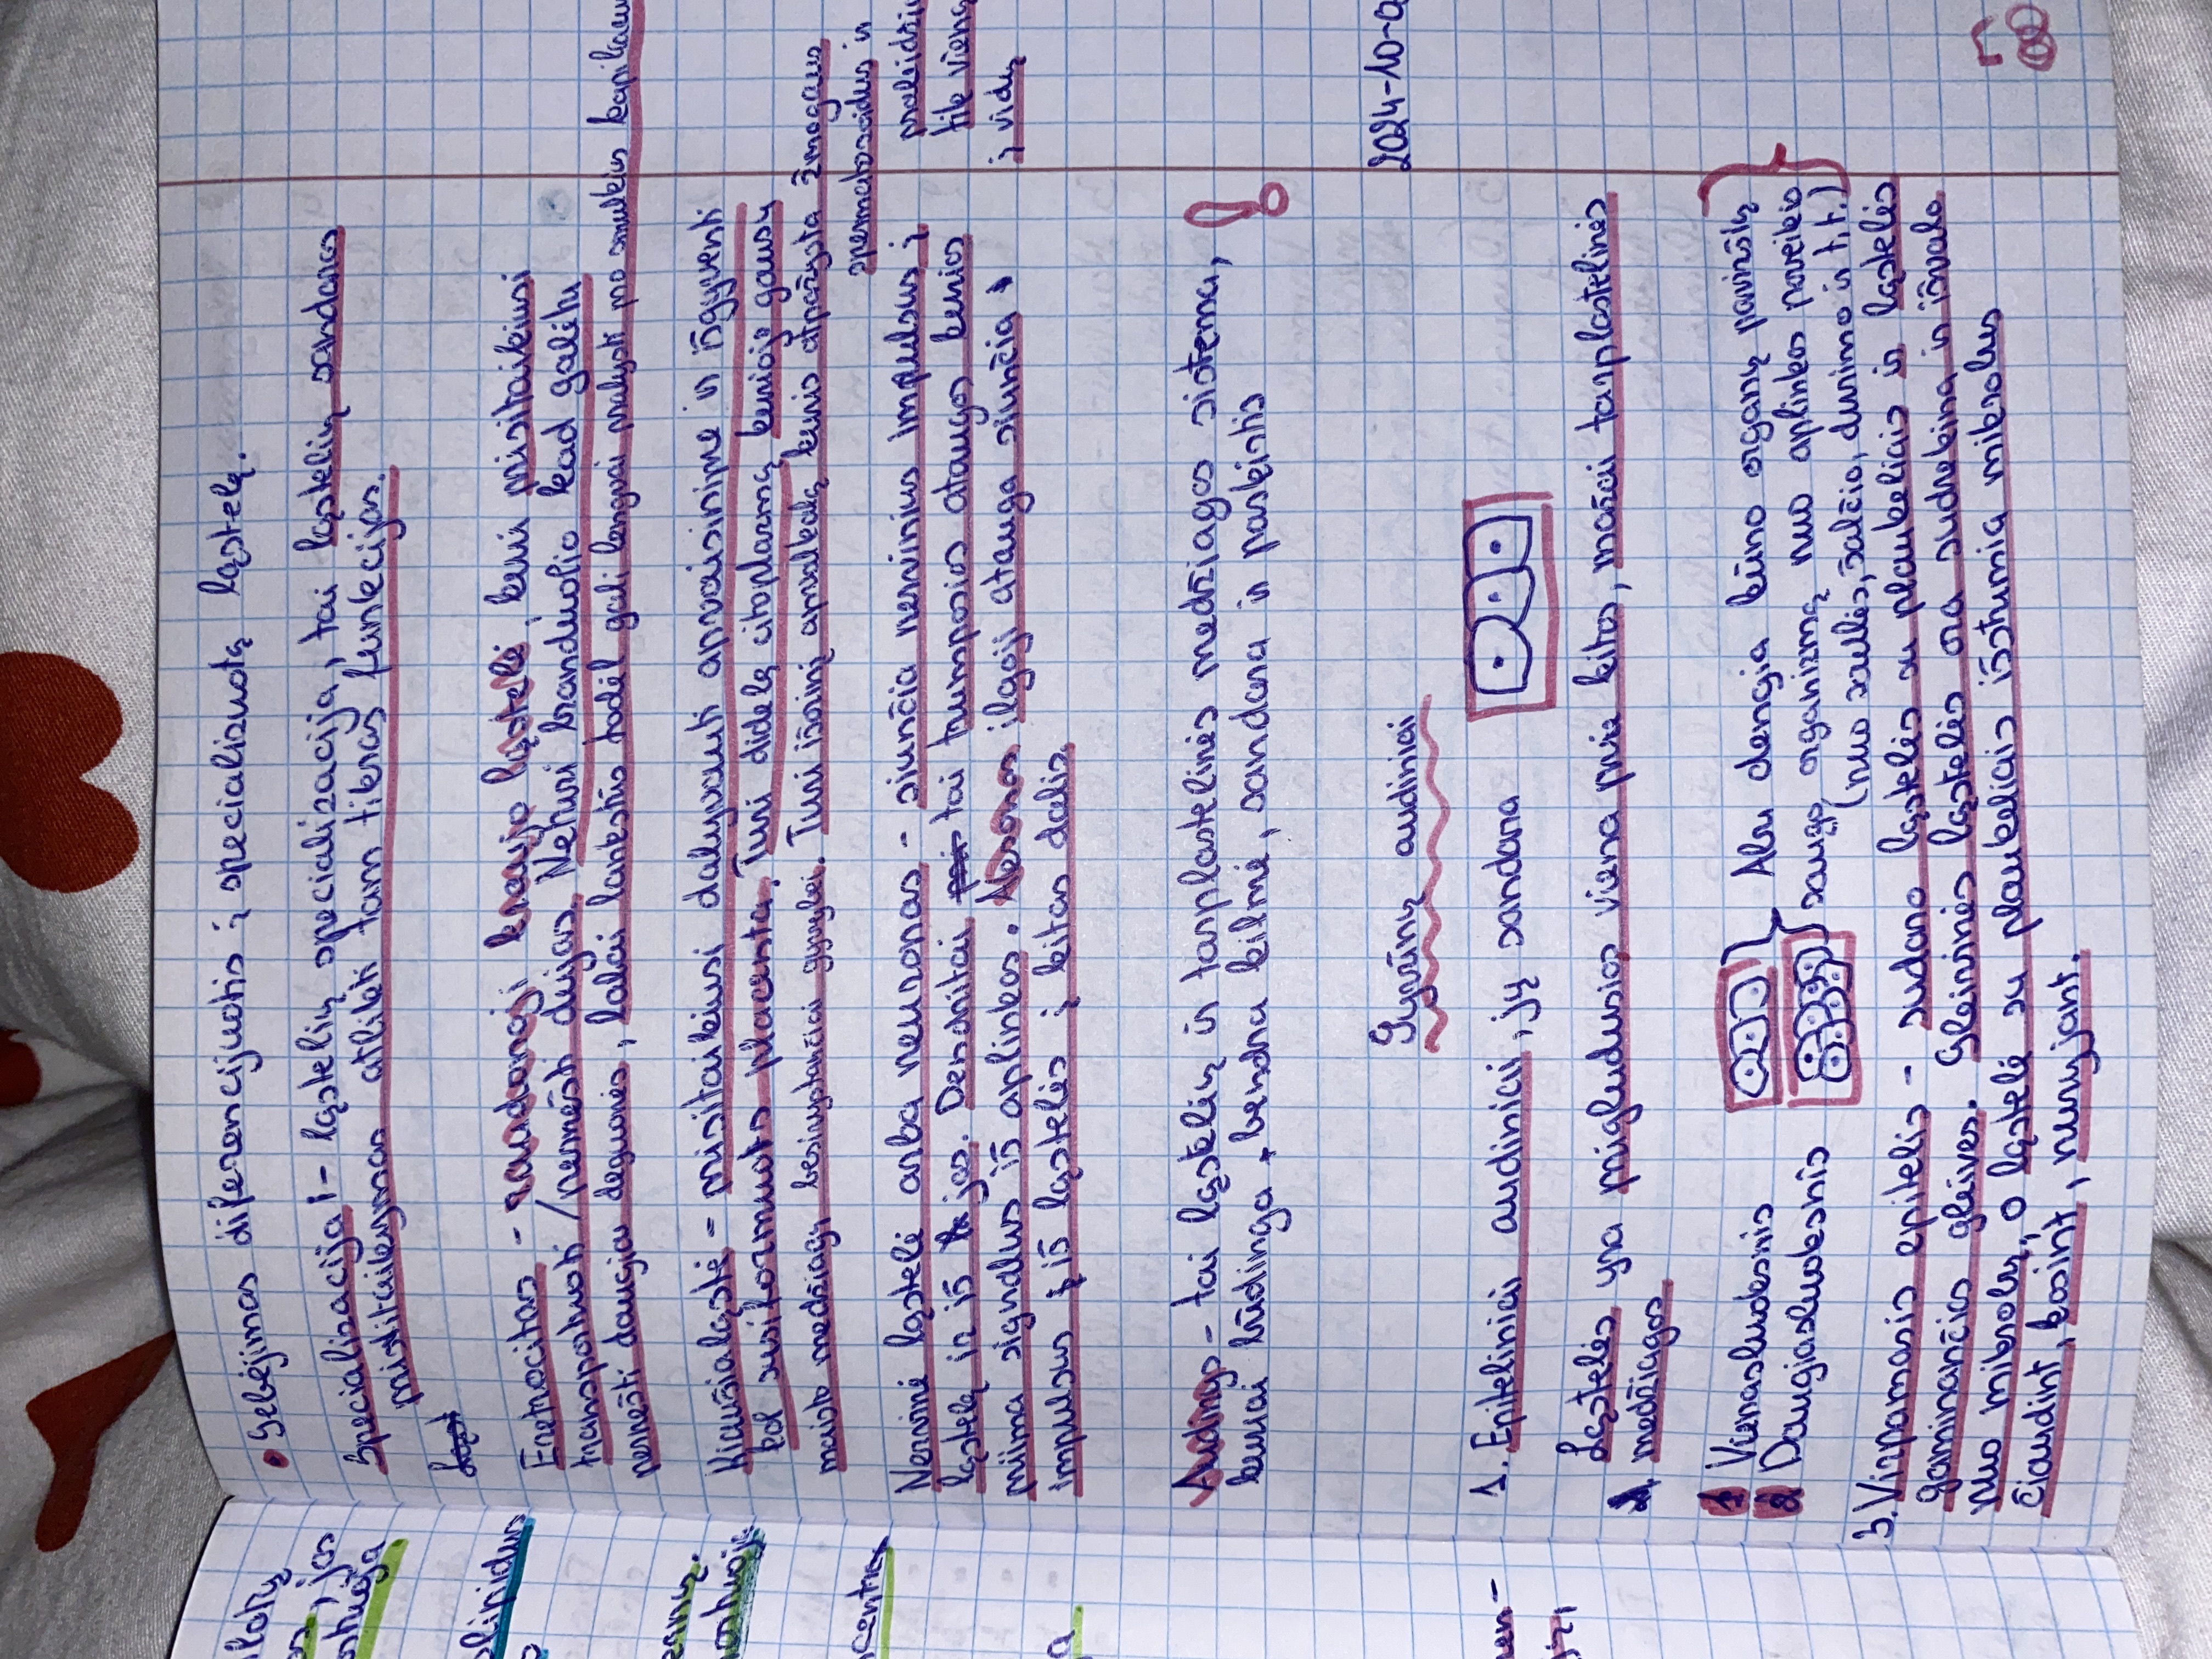 latų
os, jas
slipidus
ernų.
centra
a
ren-
• Gebėjimas diferencijuotis į specializuotą ląstelę.
Specializacija - ląstelių specializacija, tai ląstelių sandaros
prisitaikymas atlikti tam tikras funkcijas.
Ląst
Eretrocitas - raudonoji kraujo ląstelė, kuri prisitaikiusi
transportuoti/pernešti dujas. Neturi branduolio kad galėtu
pernešti daugiau deguonės, labai lankstūs todėl gali lengvai pralysti pro smulkius kapiliaru
Kiaušialąstė - prisitaikiusi dalyvauti apvaisinime ir išgyventi
kol susiformuots placenta. Turi didelę citoplazmą kurioje gausų
maisto medžiagų besivystančiai gyvybei. Turi išorinį apvalkalą kuris atpažysta žmogaus
spermatozoidus ir
praleidži
tik vieną
į vidų
Nervinė ląstelė arba neuronas - siunčia nervinius impulsus į
ląstelę ir iš jos. Dendritai tai trumposios ataugos kurios
priima signalus iš aplinkos. Aksonas ilgoji atauga siunčia
impulsus iš ląstelės į kitas dalis.
Audinys - tai ląstelių ir tarplastelinės medžiagos sistema,
kuriai būdinga bendra kilmė, sandara ir paskirtis !
Gyvūnų audiniai
2024-10-0
1. Epiteliniai audiniai, jų sandara
Ląstelės yra prigludusios viena prie kitos, mažai tarplastelinės
medžiagos
1 Vienasluoksnis
2 Daugiasluoksnis
Abu dengia kūno organų pavirsšių
saugo organizmą nuo aplinkos poveikio
(nuo saulės, šalčio, durimo ir t.t.)
3. Virpamasis epitelis - sudaro ląstelės su plaukeliais ir ląstelės
gaminančios gleives. Gleivinės ląstelės ora sudrekina ir išvalo
nuo mikrobų, o ląstelė su plaukeliais išstumia mikrobus
čiaudint, kosint, nuryjant.